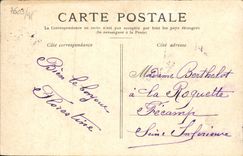 CARTE POSTALE
La Correspondance au recto n'est pas acceptée par tous les pays étrangers
(Se renseigner à la Poste)
Côté correspondance
Côté adresse
Bien le bonjour
Florentine
Madame Berthelot
à La Roquette
Fécamp
Seine Inférieure